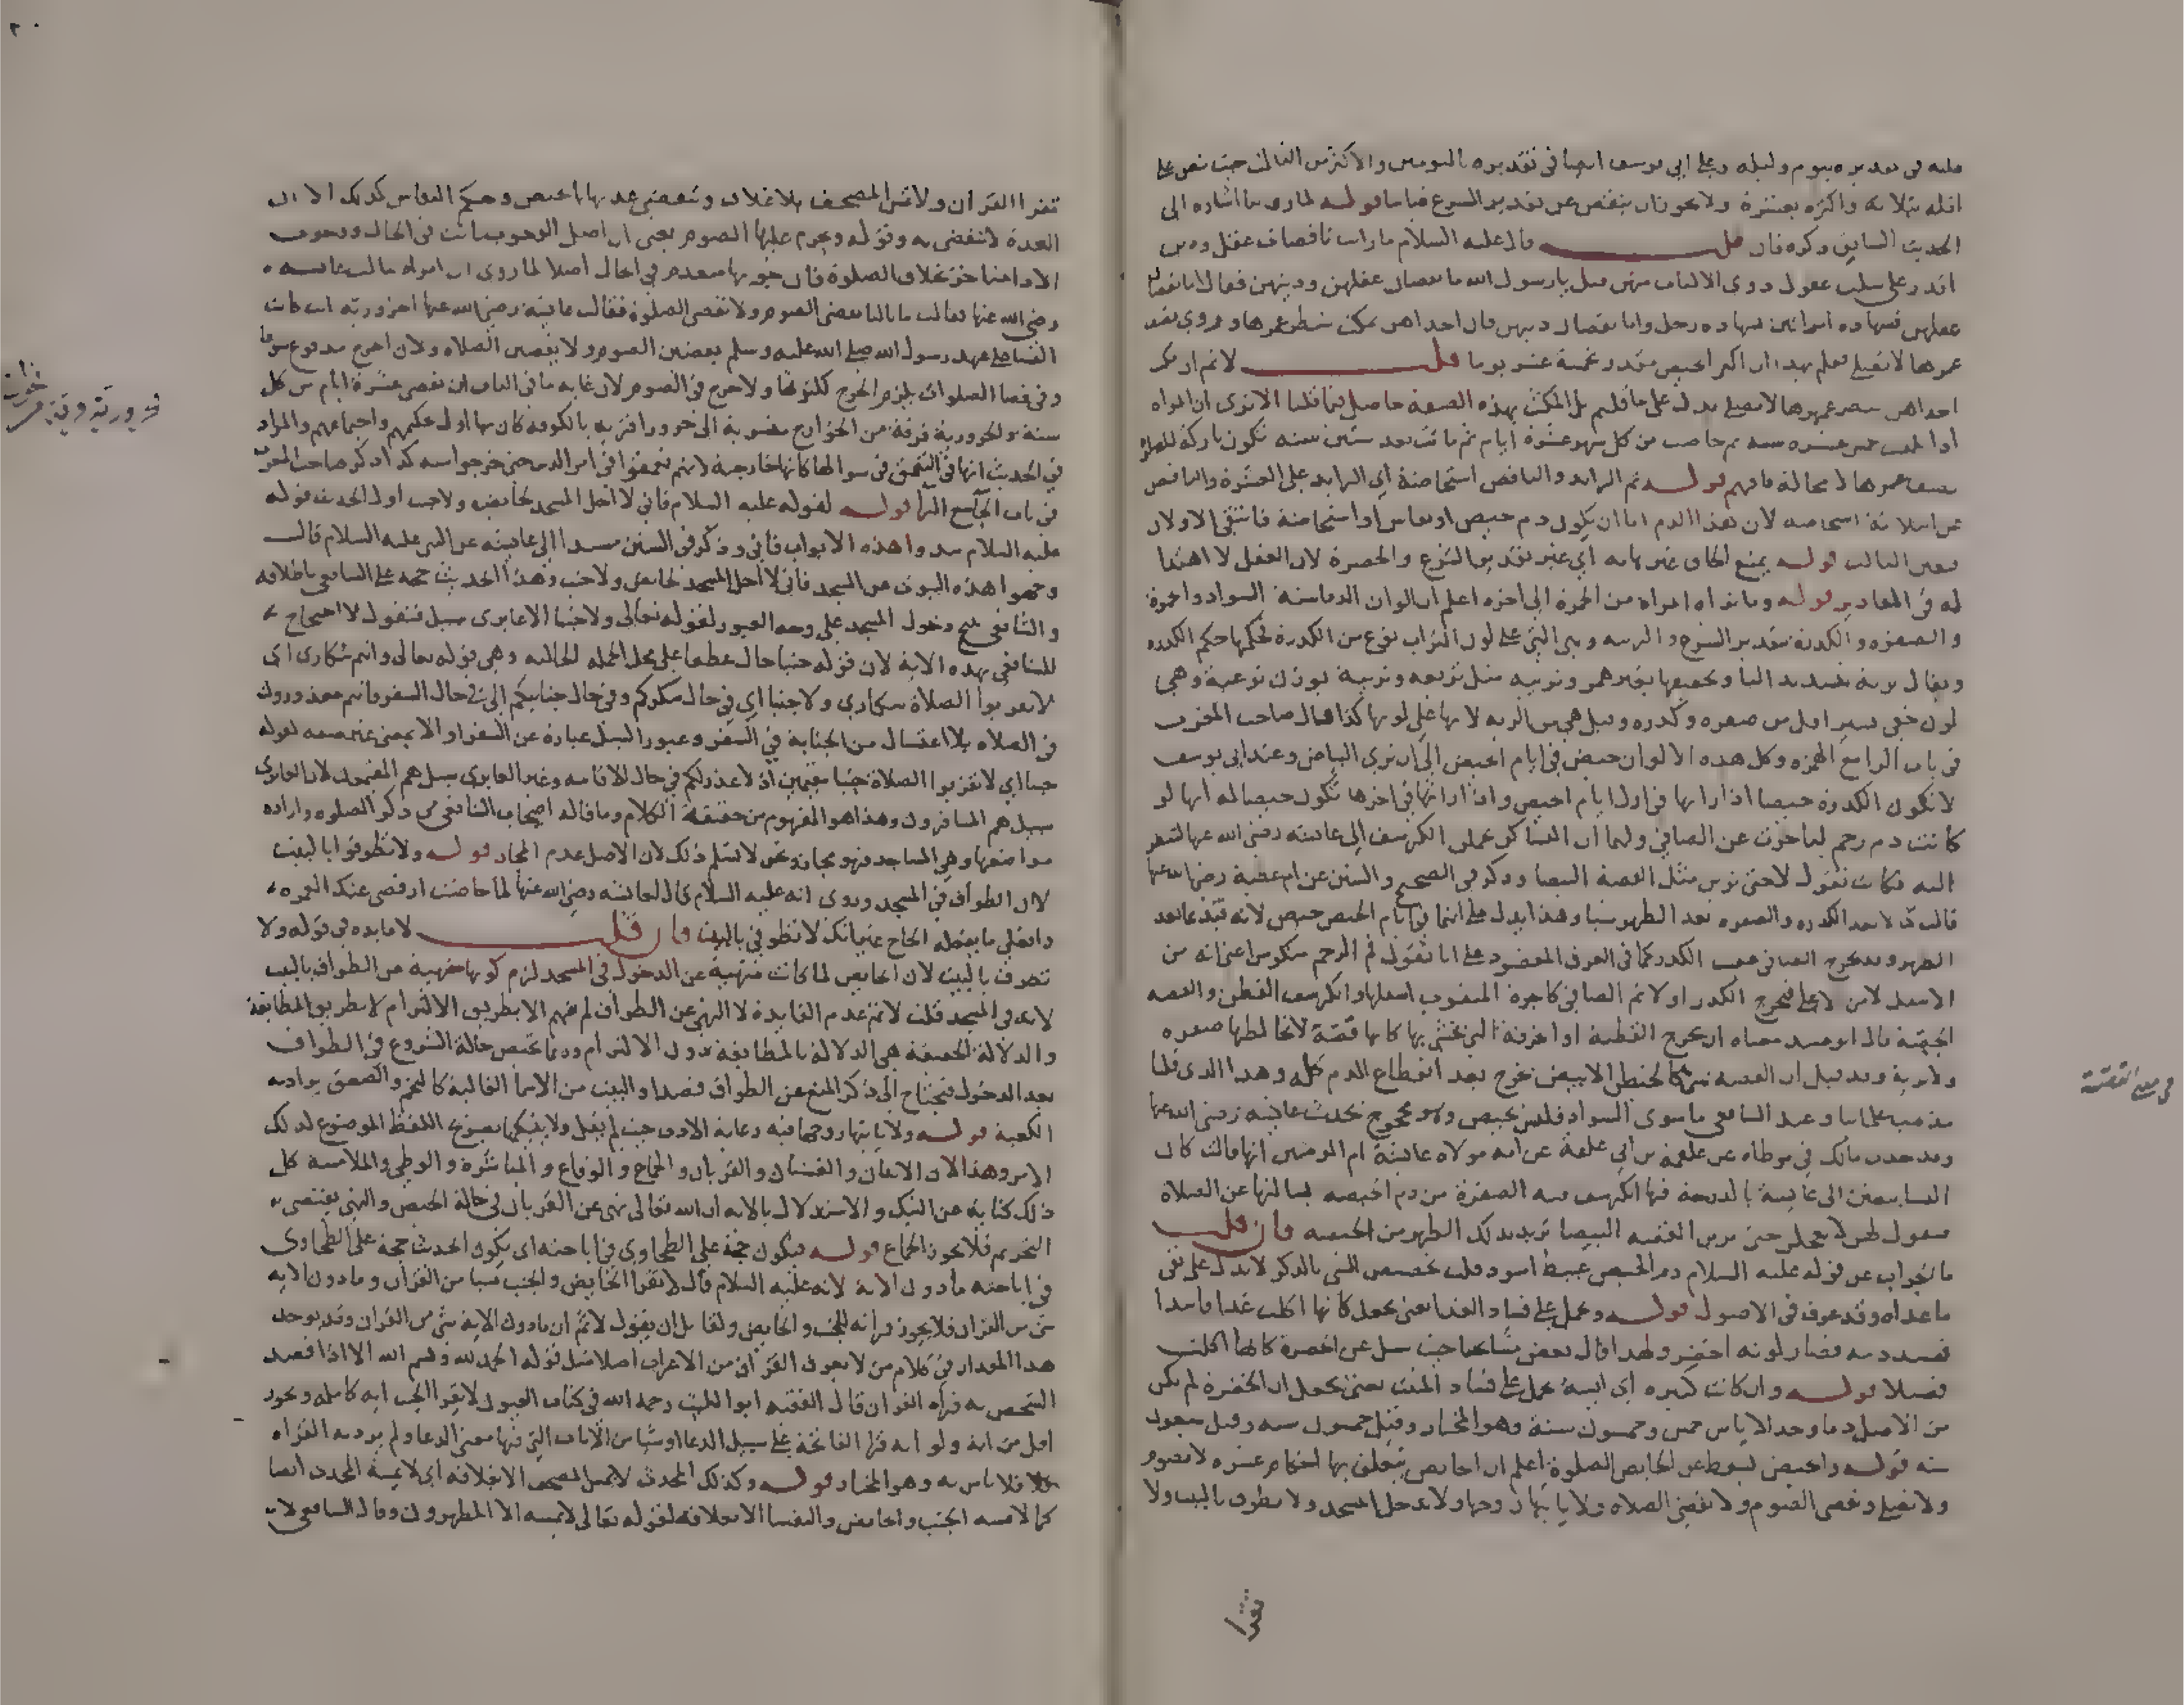 عليه في تقديره بيوم وليله وعلى ابي يوسف ايضا في تقديره باليومين والاكثر من الثالث حيث نص على
اقله بثلاثه واكثره بعشرة ولا يجوز ان ينقص عن تقدير الشرع قوله لما روينا اشاره الى
الحديث السابق ذكره فان قلت قال عليه السلام ما رايت ناقصات عقل ودين
اقدر على سلب عقول ذوي الالباب منهن قيل يا رسول الله ما نقصان عقلهن ودينهن فقال اما نقصان
عقلهن فشهاده امراتين بشهاده رجل واما نقصان دينهن فان احداهن تمكث شطر عمرها وروي نصف
عمرها لا تصلي فعلم بهذا ان اكثر الحيض مقدر بخمسة عشر يوما قلت لا نم ان ذكر
احداهن شطر عمرها لا تصلي يدل على ما قلتم بل المكث بهذه الصفة حاصل فيما قلنا الا ترى ان المراه
اذا بلغت خمس عشره سنه ثم حاضت من كل شهر عشرة ايام ثم ماتت بعد ستين سنه تكون تاركة للصلاة
نصف عمرها لا محالة فافهم قوله ثم الزايد والناقص استحاضة اي الزايد على العشرة والناقص
عن الثلاثة استحاضه لان هذا الدم اما ان يكون دم حيض او نفاس او استحاضة فانتفى الاولان
فتعين الثالث قوله يمنع الحاق غيره به اي غير تقدير الشرع والحصرة لان العقل لا اهتدا
له في المقادير قوله وما تراه المراه من الحمرة الى اخره اعلم ان الوان الدما ستة السواد والحمرة
والصفره والكدرة بتقدير الشرع والتربيه وهي التي على لون التراب نوع من الكدرة فحكمها حكم الكدره
ويقال تربة بتشديد اليا وتخفيفها بغير همز وتربيه مثل تربعه وتربية بوزن توعية وهي
لون خفي يسير اقل من صفره وكدره وقيل هي من التربه لانها على لونها كذا قال صاحب المغرب
في باب الرا مع الهمزه وكل هذه الالوان حيض في ايام الحيض الى ان تري البياض وعند ابي يوسف
لا تكون الكدرة حيضا اذا راتها في اول ايام الحيض واذا راتها في اخرها تكون حيضا له انها لو
كانت دم رحم لتاخرت عن الصافي ولهما ان النسا كن يحملن الكرسف الى عائشه رضي الله عنها لتنظر
اليه فكانت تقول لا حتى ترين مثل القصة البيضا وذكر في الصحيح والسنن عن ام عطية رضي الله عنها
قالت كنا لا نعد الكدره والصفره بعد الطهر شيا وهذا يدل على انها في ايام الحيض حيض لانه قيد بما بعد
الطهر وقد يخرج الصافي عقيب الكدر كما في العرق المفصود على انا نقول فم الرحم منكوس اعني انه من
الاسفل لا من الاعلى فيخرج الكدر اولا ثم الصافي كالجرة المثقوب اسفلها والكرسف القطن والقصه
الجصة قال ابو عبيد معناه ان تخرج القطنة او الخرقة التي تحتشي بها كانها قصة لا تخالطها صفره
ولا تربة وقد قيل ان القصه شي كالخيط الابيض تخرج بعد انقطاع الدم كله وهذا الذي قلنا
مذهب علمائنا وعند الشافعي ما سوى السواد فليس بحيض وهو محجوج بحديث عائشه رضي الله عنها
وقد حدث مالك في موطاه عن علقمه بن ابي علقمة عن امه مولاه عائشة ام المومنين انها قالت كان
النسا يبعثن الى عائشة بالدرجة فيها الكرسف فيه الصفرة من دم الحيضه يسالنها عن الصلاة
فتقول لهن لا تعجلن حتى ترين القصه البيضا تريد بذلك الطهر من الحيضه فان قلت
ما الجواب عن قوله عليه السلام دم الحيض عبيط اسود قلت تخصيص الشي بالذكر لا يدل على نفي
ما عداه وقد عرف في الاصول قوله وتحمل على فساد الغذا يعني يجعل كانها اكلت غذا فاسدا
ففسد دمه فصار لونه اخضر ولهذا قال بعض مشائخنا حيث سئل عن الخضرة كانها اكلت
فصيلا قوله وان كانت كبيره اي ايسة تحمل على فساد المنبت يعني تجعل ان الخضرة لم تكن
من الاصل دما وحد الاياس خمس وخمسون سنة وهو المختار وقيل خمسون سنه وقيل سبعون
سنه قوله والحيض يسقط عن الحايض الصلوة اعلم ان الحايض يتعلق بها احكام عشره لا تصوم
ولا تصلي وتقضي الصوم ولا تقضي الصلاه ولا ياتيها زوجها ولا تدخل المسجد ولا تطوف بالبيت ولا
تقرا
في معنى القصة
تقرا القران ولا تمس المصحف بلا غلاف وتنقضي عدتها بالحيض وحكم النفاس كذلك الا ان
العدة لا تنقضي به وقوله ويحرم عليها الصوم يعني ان اصل الوجوب ثابت في الحال ووجوب
الادا متاخر بخلاف الصلوة فان وجوبها منعدم في الحال اصلا لما روي ان امراه سالت عائشه
رضي الله عنها فقالت ما بالنا نقضي الصوم ولا نقضي الصلوة فقالت عائشة رضي الله عنها احرورية انت كانت
النسا على عهد رسول الله صلى الله عليه وسلم يقضين الصوم ولا يقضين الصلاه ولان الحرج مدفوع شرعا
وفي قضا الصلوات يلزم الحرج لكثرتها ولا حرج في الصوم لان غاية ما في الباب ان تقضي عشرة ايام من كل
سنة والحرورية فرقة من الخوارج منسوبة الى حرورا قريه بالكوفه كان بها اول تحكيمهم واجتماعهم والمراد
في الحديث انها في التعمق في سوالها كانها خارجية لانهم تعمقوا في امر الدين حتى خرجوا منه كذا ذكر صاحب المغرب
في باب الحا مع الرا قوله لقوله عليه السلام فاني لا احل المسجد لحايض ولا جنب اول الحديث قوله
عليه السلام سدوا هذه الابواب فاني وذكر في السنن مسندا الى عائشه عن النبي عليه السلام قال
وجهوا هذه البيوت عن المسجد فاني لا احل المسجد لحايض ولا جنب وهذا الحديث حجه على الشافعي باطلاقه
والشافعي يبيح دخول المسجد على وجه العبور لقوله تعالى ولا جنبا الا عابري سبيل فنقول لا احتجاج
للشافعي بهذه الاية لان قوله جنبا حال عطفا على محل الجمله الحاليه وهي قوله تعالى وانتم سكارى اي
لا تقربوا الصلاة سكارى ولا جنبا اي في حال سكركم وفي حال جنابتكم الا في حال السفر فانتم معذورون
في الصلاه بلا اغتسال من الجنابة في السفر وعبور السبيل عبارة عن السفر او الا بمعنى غير صفه لقوله
جنبا اي لا تقربوا الصلاة جنبا مقيمين اذ لا عذر لكم في حال الاقامه وغير العابري سبيل هم المقيمون لان العابري
سبيل هم المسافرون وهذا هو المفهوم من حقيقة الكلام وما قاله اصحاب الشافعي من ذكر الصلوه واراده
مواضعها وهي المساجد فهو مجاز ونحن لا نسلم ذلك لان الاصل عدم المجاز قوله ولا تطوف بالبيت
لان الطواف في المسجد وروي انه عليه السلام قال لعائشه رضي الله عنها لما حاضت ارفضي عنك العمره
وافعلي ما يفعله الحاج غير انك لا تطوفي بالبيت فان قلت لا فايده في قوله ولا
تطوف بالبيت لان الحايض لما كانت منهية عن الدخول في المسجد لزم كونها منهية عن الطواف بالبيت
لانه في المسجد قلت لا نم عدم الفايدة لا النهي عن الطواف لم يفهم الا بطريق الالتزام لا بطريق المطابقة
والدلالة الحقيقة هي الدلالة بالمطابقة دون الالتزام وربما تحيض حالة الشروع في الطواف
بعد الدخول فيحتاج الى ذكر المنع عن الطواف قصدا والبيت من الاسما الغالبة كالنجم والصعق يراد به
الكعبة قوله ولا ياتيها زوجها فيه رعاية الادب حيث لم يقل ولا ينيكها بصريح اللفظ الموضوع لذلك
الامر وهذا لان الاتيان والغشيان والقربان والجماع والوقاع والمباشرة والوطي والملامسة كل
ذلك كناية عن النيك والاستدلال بالاية ان الله تعالى نهى عن القربان في حالة الحيض والنهي يقتضي
التحريم فلا يجوز الجماع قوله فيكون حجة على الطحاوي في اباحته اي يكون الحديث حجة على الطحاوى
في اباحته ما دون الاية لانه عليه السلام قال لا تقرا الحايض والجنب شيا من القران وما دون الايه
شي من القران فلا يجوز قراته للجنب والحايض ولقائل ان يقول لا نم ان ما دون الاية شي من القران وقد يوجد
هذا المقدار في كلام من لا يعرف القران من الاعراب اصلا مثل قوله الحمد لله وبسم الله الا اذا قصد
الشخص به قراة القران قال الفقيه ابو الليث رحمه الله في كتاب العيون لا يقرا الجنب ايه كامله ويجوز
اقل من ايه ولو انه قرا الفاتحة على سبيل الدعا او شيا من الايات التي فيها معنى الدعا ولم يرد به القراه
فلا باس به وهو المختار قوله وكذلك المحدث لا يمس المصحف الا بغلافه اي لا يمسه المحدث ايضا
كما لا يمسه الجنب والحايض والنفسا الا بغلافه لقوله تعالى لا يمسه الا المطهرون وقال الشافعي لا